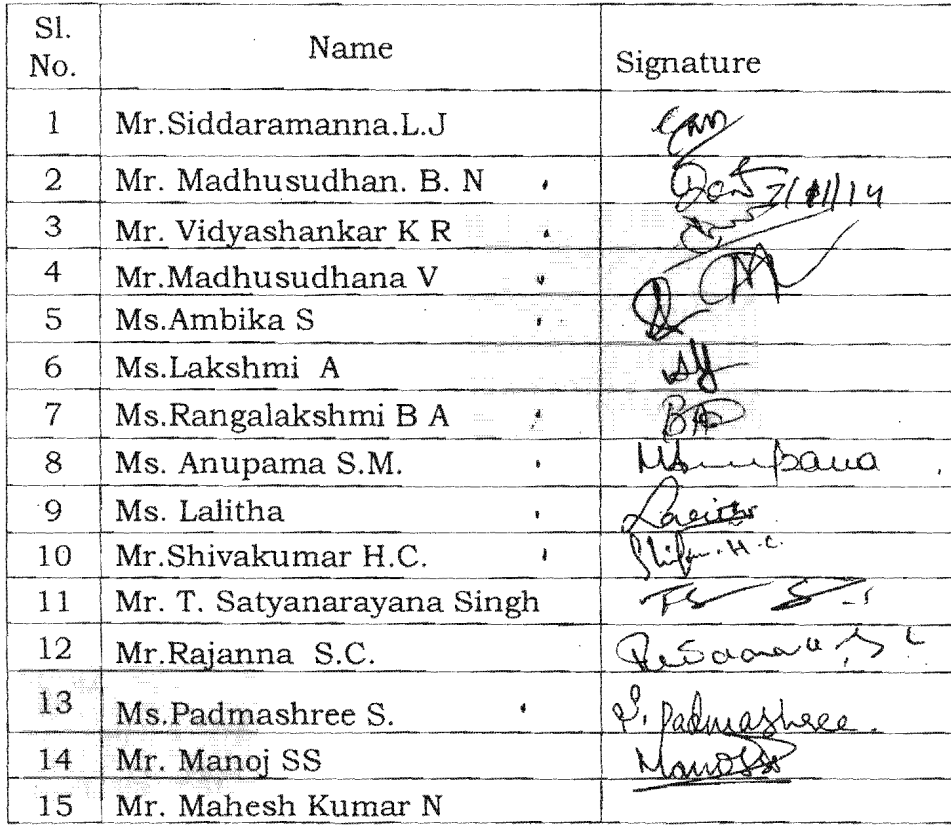 Sl. No. Name Signature
1 Mr.Siddaramanna.L.J
2 Mr. Madhusudhan. B. N 7/11/14
3 Mr. Vidyashankar K R
4 Mr.Madhusudhana V
5 Ms.Ambika S
6 Ms.Lakshmi A
7 Ms.Rangalakshmi B A BA
8 Ms. Anupama S.M.
9 Ms. Lalitha
10 Mr.Shivakumar H.C. H.C.
11 Mr. T. Satyanarayana Singh
12 Mr.Rajanna S.C.
13 Ms.Padmashree S. S. Padmashree.
14 Mr. Manoj SS Manoj SS
15 Mr. Mahesh Kumar N